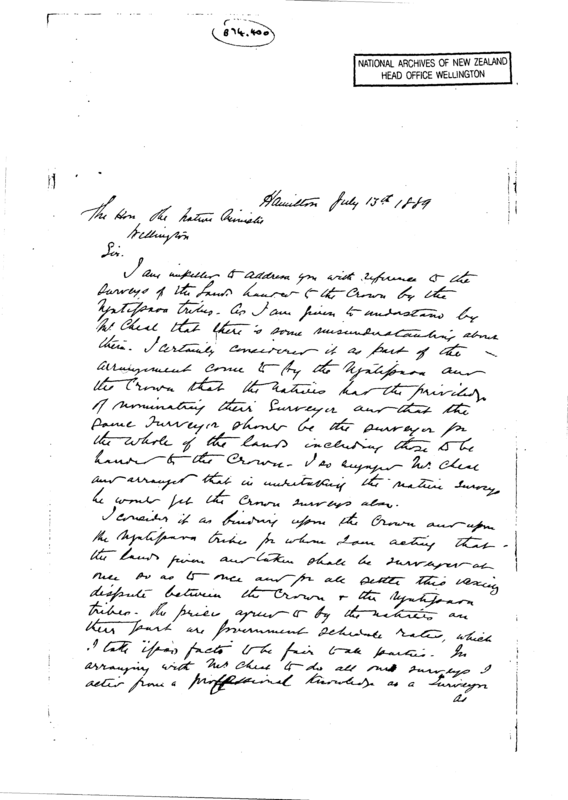 874.400
NATIONAL ARCHIVES OF NEW ZEALAND
HEAD OFFICE WELLINGTON
Hamilton July 13th 1889
The Hon. The Native Minister
Wellington
Sir.
I am impelled to address you with reference to the
surveys of the Lands handed to the Crown by the
tribes. As I am given to understand by
Mr Cheal that there is some misunderstanding about
them. I certainly considered it as part of the
arrangement come to by the and
the Crown that the natives had the privilege
of nominating their Surveyor and that the
same Surveyor should be the surveyor for
the whole of the lands including those to be
handed to the Crown. I so engaged Mr. Cheal
and arranged that in undertaking the native surveys
he would get the Crown surveys also.
I consider it as binding upon the Crown and upon
the tribes for whom I am acting that
the lands given and taken shall be surveyed at
once so as to once and for all settle this vexing
dispute between the Crown & the
tribes. The prices agreed to by the natives on
their part are Government schedule rates, which
I take ipso facto to be fair to all parties. In
arranging with Mr Cheal to do all our surveys I
acted from a professional knowledge as a Surveyor
as